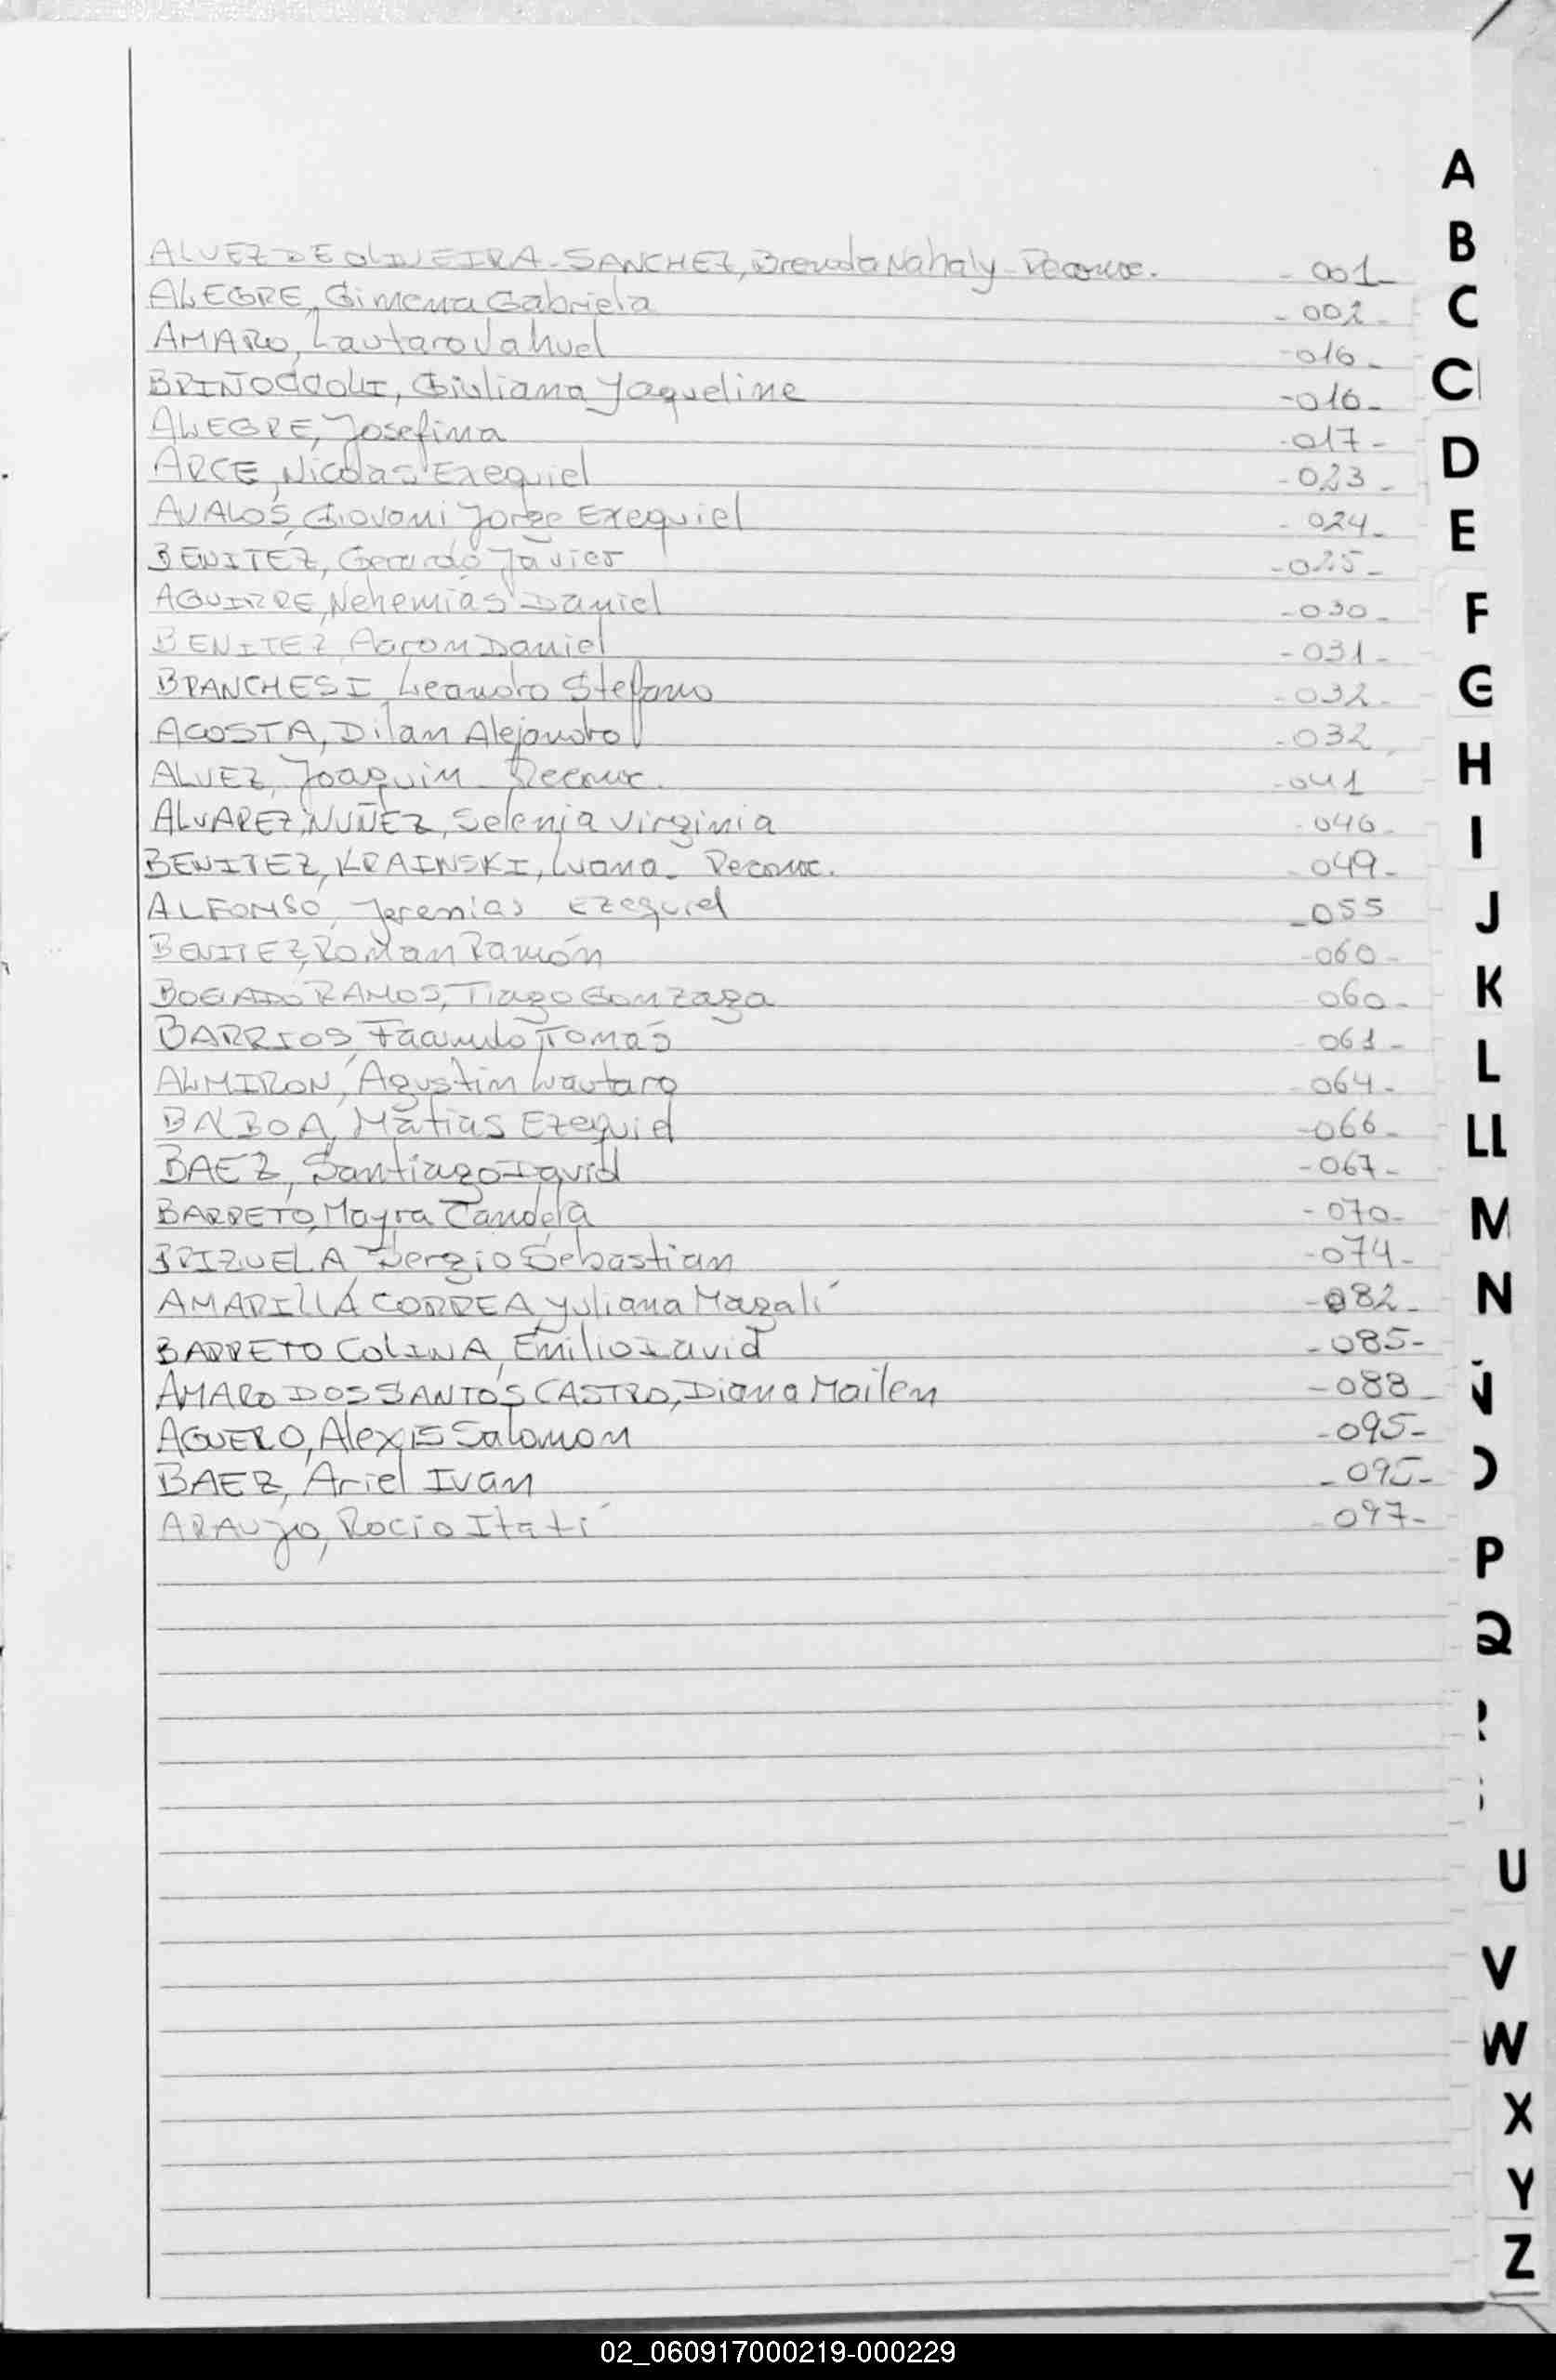 ALVEZ DE OLIVEIRA - SANCHEZ, Brenda Nahaly - Reconoc. - 001 -
ALEGRE, Gimena Gabriela - 002 -
AMARO, Lautaro Nahuel - 016 -
BRINOCCOLI, Giuliana Jaqueline - 016 -
ALEGRE, Josefina - 017 -
ARCE, Nicolas Exequiel - 023 -
AVALOS, Giovani Jorge Exequiel - 024 -
BENITEZ, Gerardo Javier - 025 -
AGUIRRE, Nehemias Daniel - 030 -
BENITEZ, Aaron Daniel - 031 -
BRANCHESI, Leandro Stefano - 032 -
ACOSTA, Dilan Alejandro - 032
ALVEZ, Joaquin - Reconoc. - 041
ALVAREZ, NUÑEZ, Selenia Virginia - 046 -
BENITEZ, KRAINSKI, Luana - Reconoc. - 049 -
ALFONSO, Jeremias Ezequiel - 055
BENITEZ, Roman Ramón - 060 -
BOGADO RAMOS, Tiago Gonzaga 060 -
BARRIOS, Facundo Tomás 061 -
ALMIRON, Agustin Lautaro 064 -
BALBOA, Matias Ezequiel - 066 -
BAEZ, Santiago David - 067 -
BARRETO, Mayra Candela - 070 -
BRIZUELA, Sergio Sebastian - 074 -
AMARILLA CORREA, Yuliana Magalí - 082 -
BARRETO COLINA, Emilio David - 085 -
AMARO DOS SANTOS CASTRO, Diana Mailen - 088 -
AGUERO, Alexis Salomon - 095 -
BAEZ, Ariel Ivan - 095 -
ARAUJO, Rocio Itatí - 097 -
A
B
C
C
D
E
F
G
H
I
J
K
L
LL
M
N
P
Q
U
V
W
X
Y
Z
02_060917000219-000229